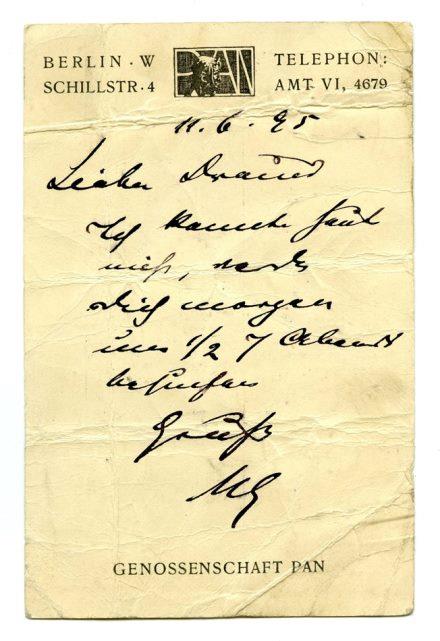 BERLIN · W
SCHILLSTR · 4
PAN
TELEPHON:
AMT VI, 4679
11. 6. 95
Lieber
Ich konnte heut
nicht, werde
Dich morgen
um 1/2 7 Abends
besuchen
Gruß
MG
GENOSSENSCHAFT PAN